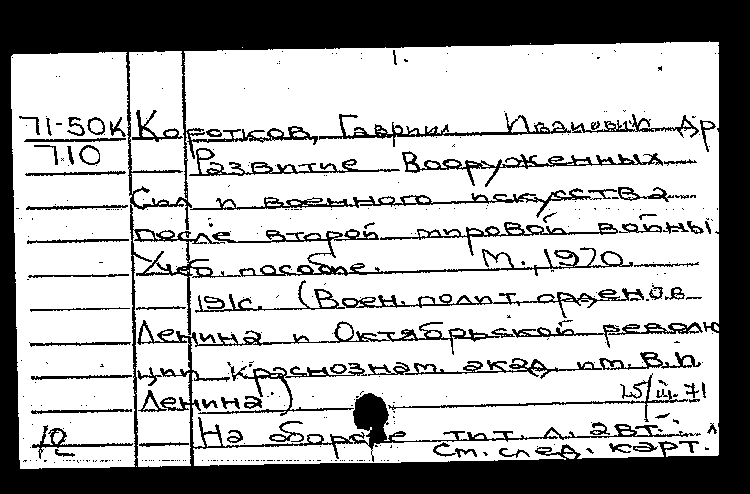 1.
71-50К Коротков, Гавриил Иванович др.
710 Развитие Вооруженных
Сил и военного искусства
после второй мировой войны.
Учеб. пособие. М., 1970.
191с. (Воен. полит. орденов
Ленина и Октябрьской револю
ции краснознам. акад. им. В. И.
Ленина).
25/III.71
На обороте тит. л. авт.:
12 См. след. карт.